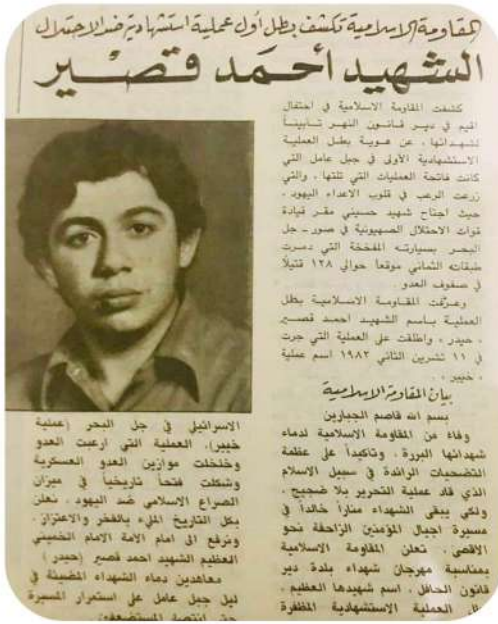 المقاومة الاسلامية تكشف بطل أول عملية استشهادية ضد الاحتلال
الشهيد أحمد قصير
كشفت المقاومة الاسلامية في احتفال
اقيم في دير قانون النهر تأبيناً
لشهدائها ، عن هوية بطل العملية
الاستشهادية الأولى في جبل عامل التي
كانت فاتحة العمليات التي تلتها ، والتي
زرعت الرعب في قلوب الاعداء اليهود ،
حيث اجتاح شهيد حسيني مقر قيادة
قوات الاحتلال الصهيونية في صور ـ جل
البحر بسيارته المفخخة التي دمرت
طبقاته الثماني موقعاً حوالي ١٢٨ قتيلاً
في صفوف العدو .
وعرّفت المقاومة الاسلامية بطل
العملية باسم الشهيد احمد قصير
، حيدر ، واطلقت على العملية التي جرت
في ١١ تشرين الثاني ١٩٨٢ اسم عملية
، خيبر ، .
بيان المقاومة الاسلامية
بسم الله قاصم الجبارين
وفاءً من المقاومة الاسلامية لدماء
شهدائها البررة ، وتاكيداً على عظمة
التضحيات الرائدة في سبيل الاسلام
الذي قاد عملية التحرير بلا ضجيج ،
ولكي يبقى الشهداء مناراً خالداً في
مسيرة اجيال المؤمنين الزاحفة نحو
الاقصى . تعلن المقاومة الاسلامية
بمناسبة مهرجان شهداء بلدة دير
قانون الحافل ، اسم شهيدها العظيم ،
العملية الاستشهادية المظفرة
الاسرائيلي في جل البحر (عملية
خيبر)، العملية التي ارعبت العدو
وخلخلت موازين العدو العسكرية
وشكلت فتحاً تاريخياً في ميزان
الصراع الاسلامي ضد اليهود ، نعلن
بكل التاريخ المليء بالفخر والاعتزاز ،
ونرفع الى امام الامة الامام الخميني
العظيم الشهيد احمد قصير (حيدر)
معاهدين دماء الشهداء المضيئة في
ليل جبل عامل على استمرار المسيرة
حتى انتصار المستضعفين